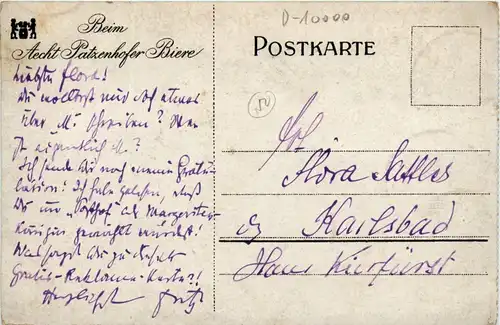 Beim
Aecht Patzenhofer Biere
D-10000
POSTKARTE
Liebste Flora!
Du wolltest mir doch etwas
über "M." schreiben? Wer
ist eigentlich M.?
Ich sende Dir noch meine Gratu-
lation! Ich habe gelesen, daß
Du im "Posthof" als Margeriten-
königin gewählt wurdest!
Was sagst Du zu dieser
Gratis-Reklame-Karte?!
Herzlichst Fritz
Flora Sattler
Karlsbad
Haus Kurfürst